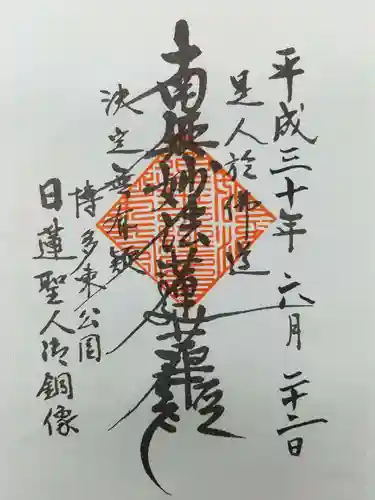 平成三十年六月二十二日
是人於佛道
南無妙法蓮華經
決定無有疑
博多東公園
日蓮聖人御銅像